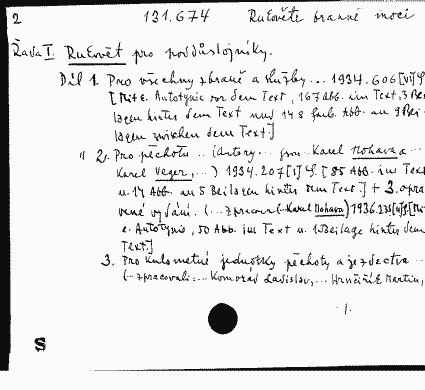 2 131.674 Rukověte branné moci
Řada I. Rukověť pro poddůstojníky.
Díl 1. Pro všechny zbraně a služby ... 1934. 606 [VI] S.
[Mit e. Autotypie vor dem Text, 167 Abb. im Text, 3 Bei
lagen hinter dem Text und 148 farb. Abb. an 9 Bei
lagen zwischen dem Text]
" 2. Pro pěchotu ... (Autory ... Karel Mohava a ...
Karel Veger, ...) 1934. 207 [1] S. [85 Abb. im Text
u. 14 Abb. an 5 Beilagen hinter dem Text] + 3. opra
vené vydání. (... zpracoval Karel Mohava) 1936. 235 [Mit
e. Autotypie, 50 Abb. im Text u. 1 Beilage hinter dem
Text]
3. Pro kulometné jednotky pěchoty a jezdectva ...
(... zpracovali ... Komorád Ladislav, ... Martin,
./.
S